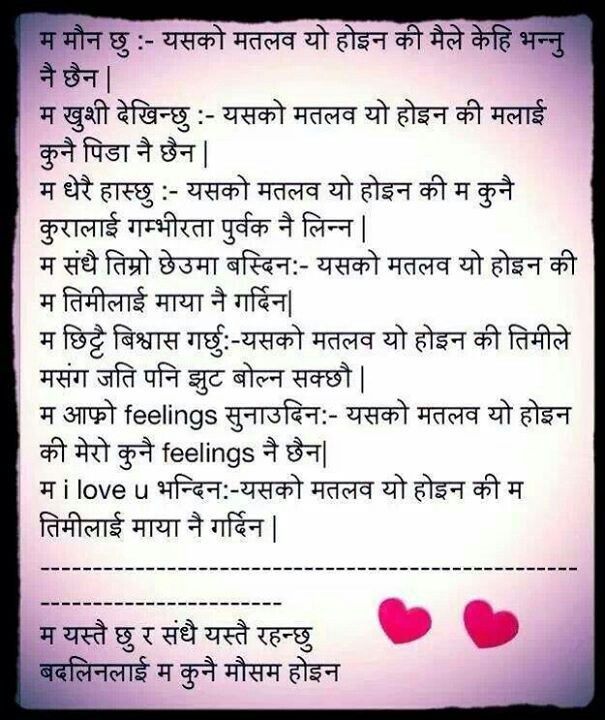 म मौन छु :- यसको मतलव यो होइन की मैले केहि भन्नु
नै छैन |
म खुशी देखिन्छु :- यसको मतलव यो होइन की मलाई
कुनै पिडा नै छैन |
म धेरै हास्छु :- यसको मतलव यो होइन की म कुनै
कुरालाई गम्भीरता पुर्वक नै लिन्न |
म संधै तिम्रो छेउमा बस्दिन:- यसको मतलव यो होइन की
म तिमीलाई माया नै गर्दिन|
म छिट्टै बिश्वास गर्छु:-यसको मतलव यो होइन की तिमीले
मसंग जति पनि झुट बोल्न सक्छौ |
म आफ्नो feelings सुनाउदिन:- यसको मतलव यो होइन
की मेरो कुनै feelings नै छैन|
म i love u भन्दिन:-यसको मतलव यो होइन की म
तिमीलाई माया नै गर्दिन |
-----------------------------------------------------
------------------------
म यस्तै छु र संधै यस्तै रहन्छु
बदलिनलाई म कुनै मौसम होइन